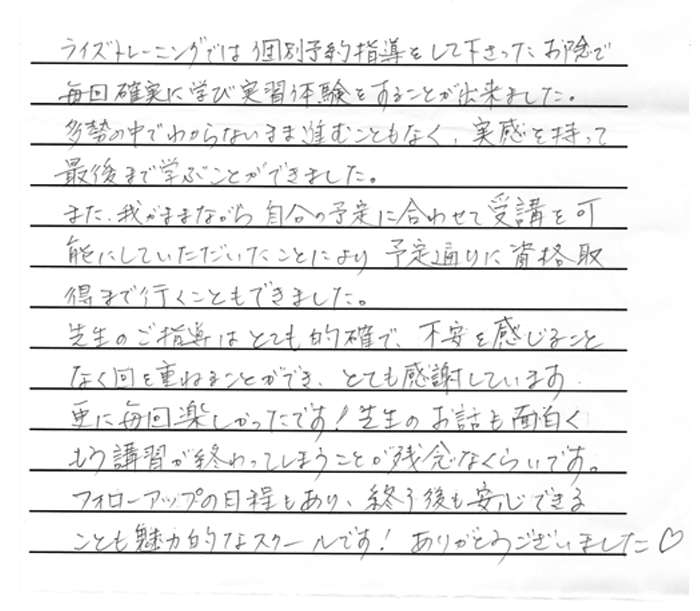 ライズトレーニングでは個別予約指導をして下さったお陰で
毎回確実に学び実習体験をすることが出来ました。
多勢の中でわからないまま進むこともなく、実感を持って
最後まで学ぶことができました。
また、我がままながら自分の予定に合わせて受講を可
能にしていただいたことにより予定通りに資格取
得まで行くこともできました。
先生のご指導はとても的確で、不安を感じること
なく回を重ねることができ、とても感謝しています.
更に毎回楽しかったです!先生のお話も面白く
もう講習が終わってしまうことが残念なくらいです。
フォローアップの日程もあり、終了後も安心できる
ことも魅力的なスクールです!ありがとうございました♡